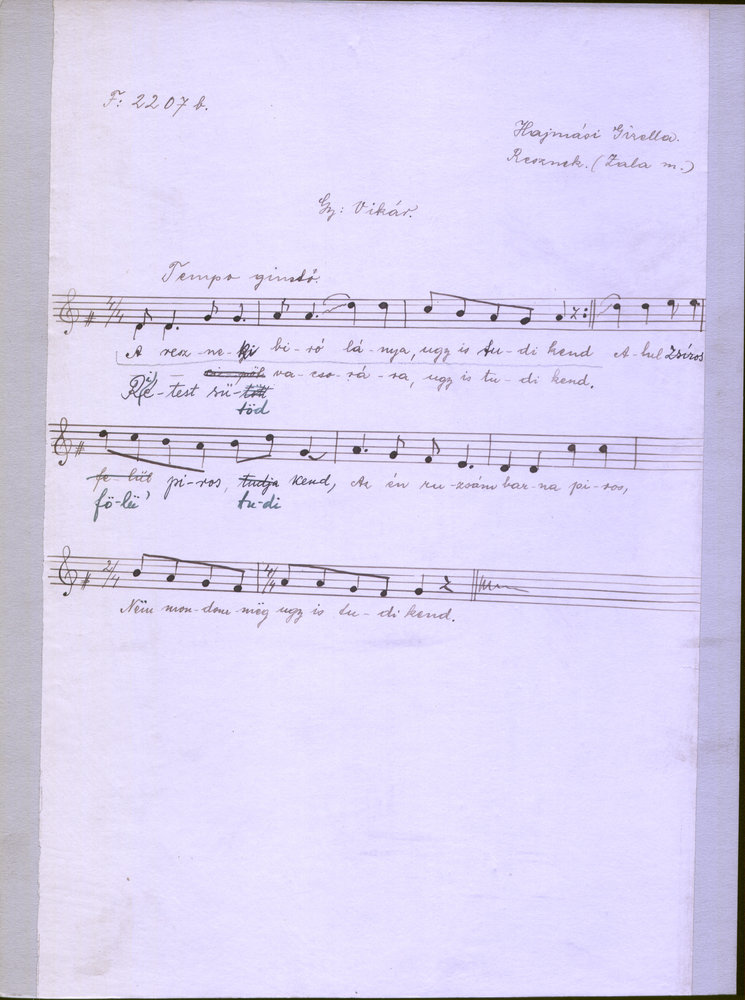 F: 2207 b.
Hajmási Gizella.
Resznek. (Zala m.)
Gy: Vikár.
Tempo giusto.
4/4
A resz-ne-ki bi-ró lá-nya, ugy is tu-di kend A-lul zsíros
va-cso-rá-ra, ugy is tu-di kend.
Ré-test sü-tött
töd
fe-lül pi-ros, tudja kend, Az én ru-zsám bar-na pi-ros,
fö-lü' tu-di
2/4 4/4
Nëm mon-dom-mëg ugy is tu-di kend.